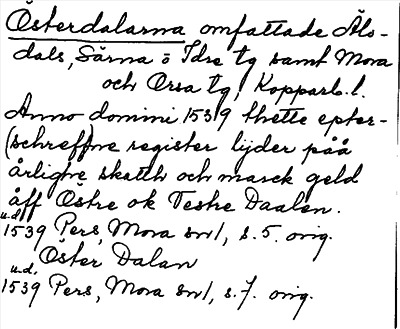 Österdalarna omfattade Äls-
dals, Särna o Idre tg samt Mora
och Orsa tg, Kopparb. l.
Anno domini 1539 thette epter-
(schreff)ne register lijder påå
årligne skatth och marck geld
åff Östre ok Vestre Daalen.
u.d.
1539 Pers, Mora sn/, s. 5. orig.
Öster Dalan
u.d.
1539 Pers, Mora sn/, s. 7. orig.